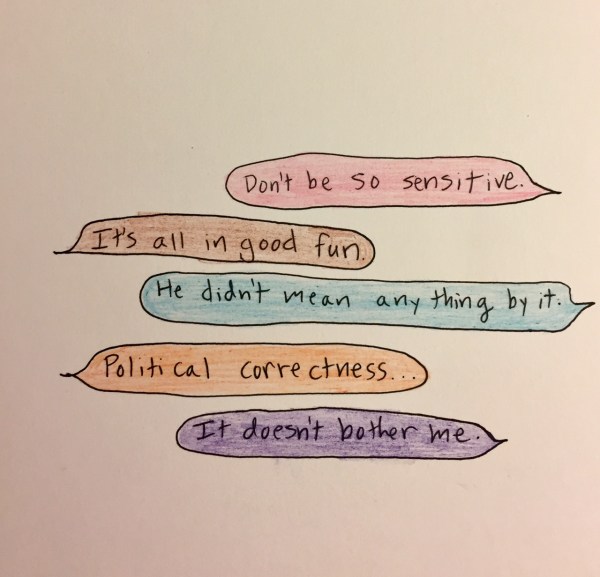 Don't be so sensitive.
It's all in good fun.
He didn't mean any thing by it.
Political correctness...
It doesn't bother me.